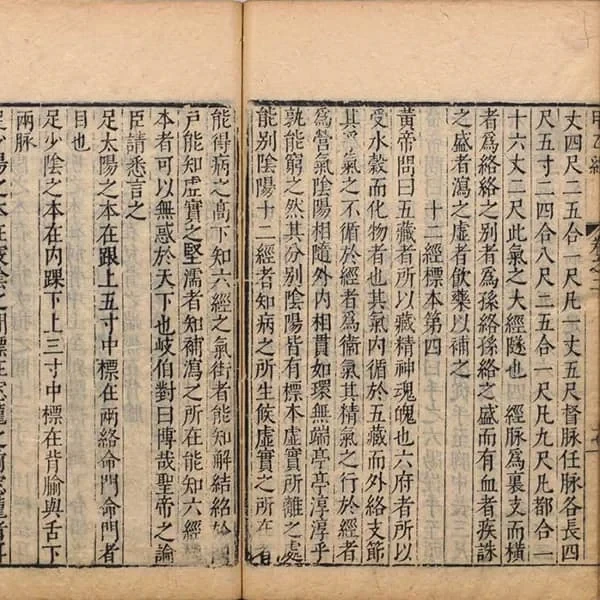 甲乙經 卷之二
丈四尺二五合一尺凡一丈五尺督脉任脉各長四
尺五寸二四合八尺二五合一尺凡九尺凡都合一
十六丈二尺此氣之大經隧也 經脉爲裏支而橫
者爲絡絡之別者爲孫絡孫絡之盛而有血者疾誅
之盛者瀉之虛者飲藥以補之
十二經標本第四
黃帝問曰五藏者所以藏精神魂魄也六府者所以
受水穀而化物者也其氣內循於五藏而外絡支節
其浮氣之不循於經者爲衞氣其精氣之行於經者
爲營氣陰陽相隨外內相貫如環無端亭亭淳淳乎
孰能窮之然其分別陰陽皆有標本虛實所離之處
能別陰陽十二經者知病之所生候虛實之所在者
能得病之高下知六經之氣街者能知解結紹於
戸能知虛實之堅濡者知補瀉之所在能知六經
本者可以無惑於天下也岐伯對曰博哉聖帝之論
臣請悉言之
足太陽之本在跟上五寸中標在兩絡命門命門者
目也
足少陰之本在內踝下上三寸中標在背腧與舌下
兩脉
足少陽之本在竅陰之間標在窓籠之前窓籠者耳